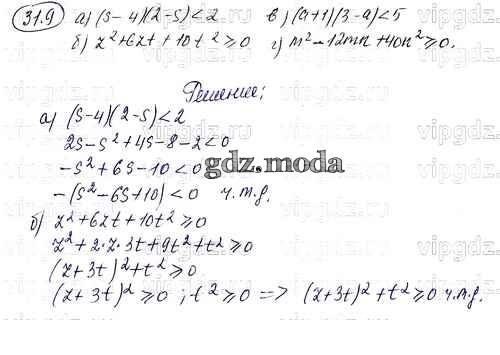 31.9 а) (s-4)(2-s)<2 в) (a+1)(3-a)<5
б) z²+6zt+10t²≥0 г) m²-12mn+40n²≥0.
Решение:
а) (s-4)(2-s)<2
2s-s²+4s-8-2<0
-s²+6s-10<0
gdz.moda
-(s²-6s+10)<0 ч.т.д.
б) z²+6zt+10t²≥0
z²+2·z·3t+9t²+t²≥0
(z+3t)²+t²≥0
(z+3t)²≥0; t²≥0 => (z+3t)²+t²≥0 ч.т.д.
vipgdz